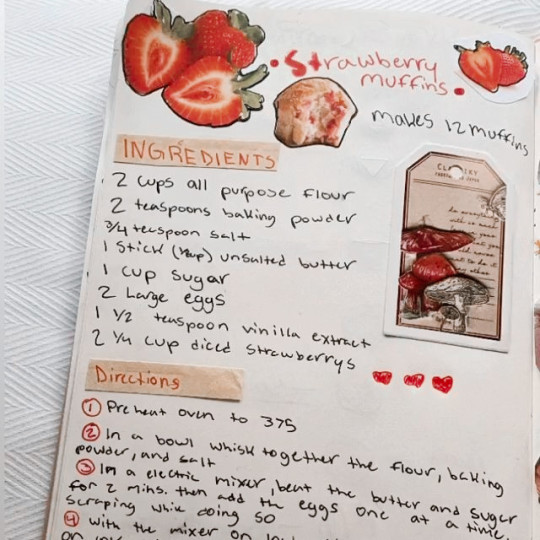 • Strawberry
muffins •
makes 12 muffins
INGREDIENTS
2 cups all purpose flour
2 teaspoons baking powder
3/4 teaspoon salt
1 stick (1/2 cup) unsalted butter
1 cup sugar
2 Large eggs
1 1/2 teaspoon vinilla extract
2 1/4 cup diced strawberrys
Directions
1 Preheat oven to 375
2 In a bowl whisk together the flour, baking
powder, and salt
3 In a electric mixer, beat the butter and sugar
for 2 mins. then add the eggs one at a time,
scraping while doing so
4 with the mixer on